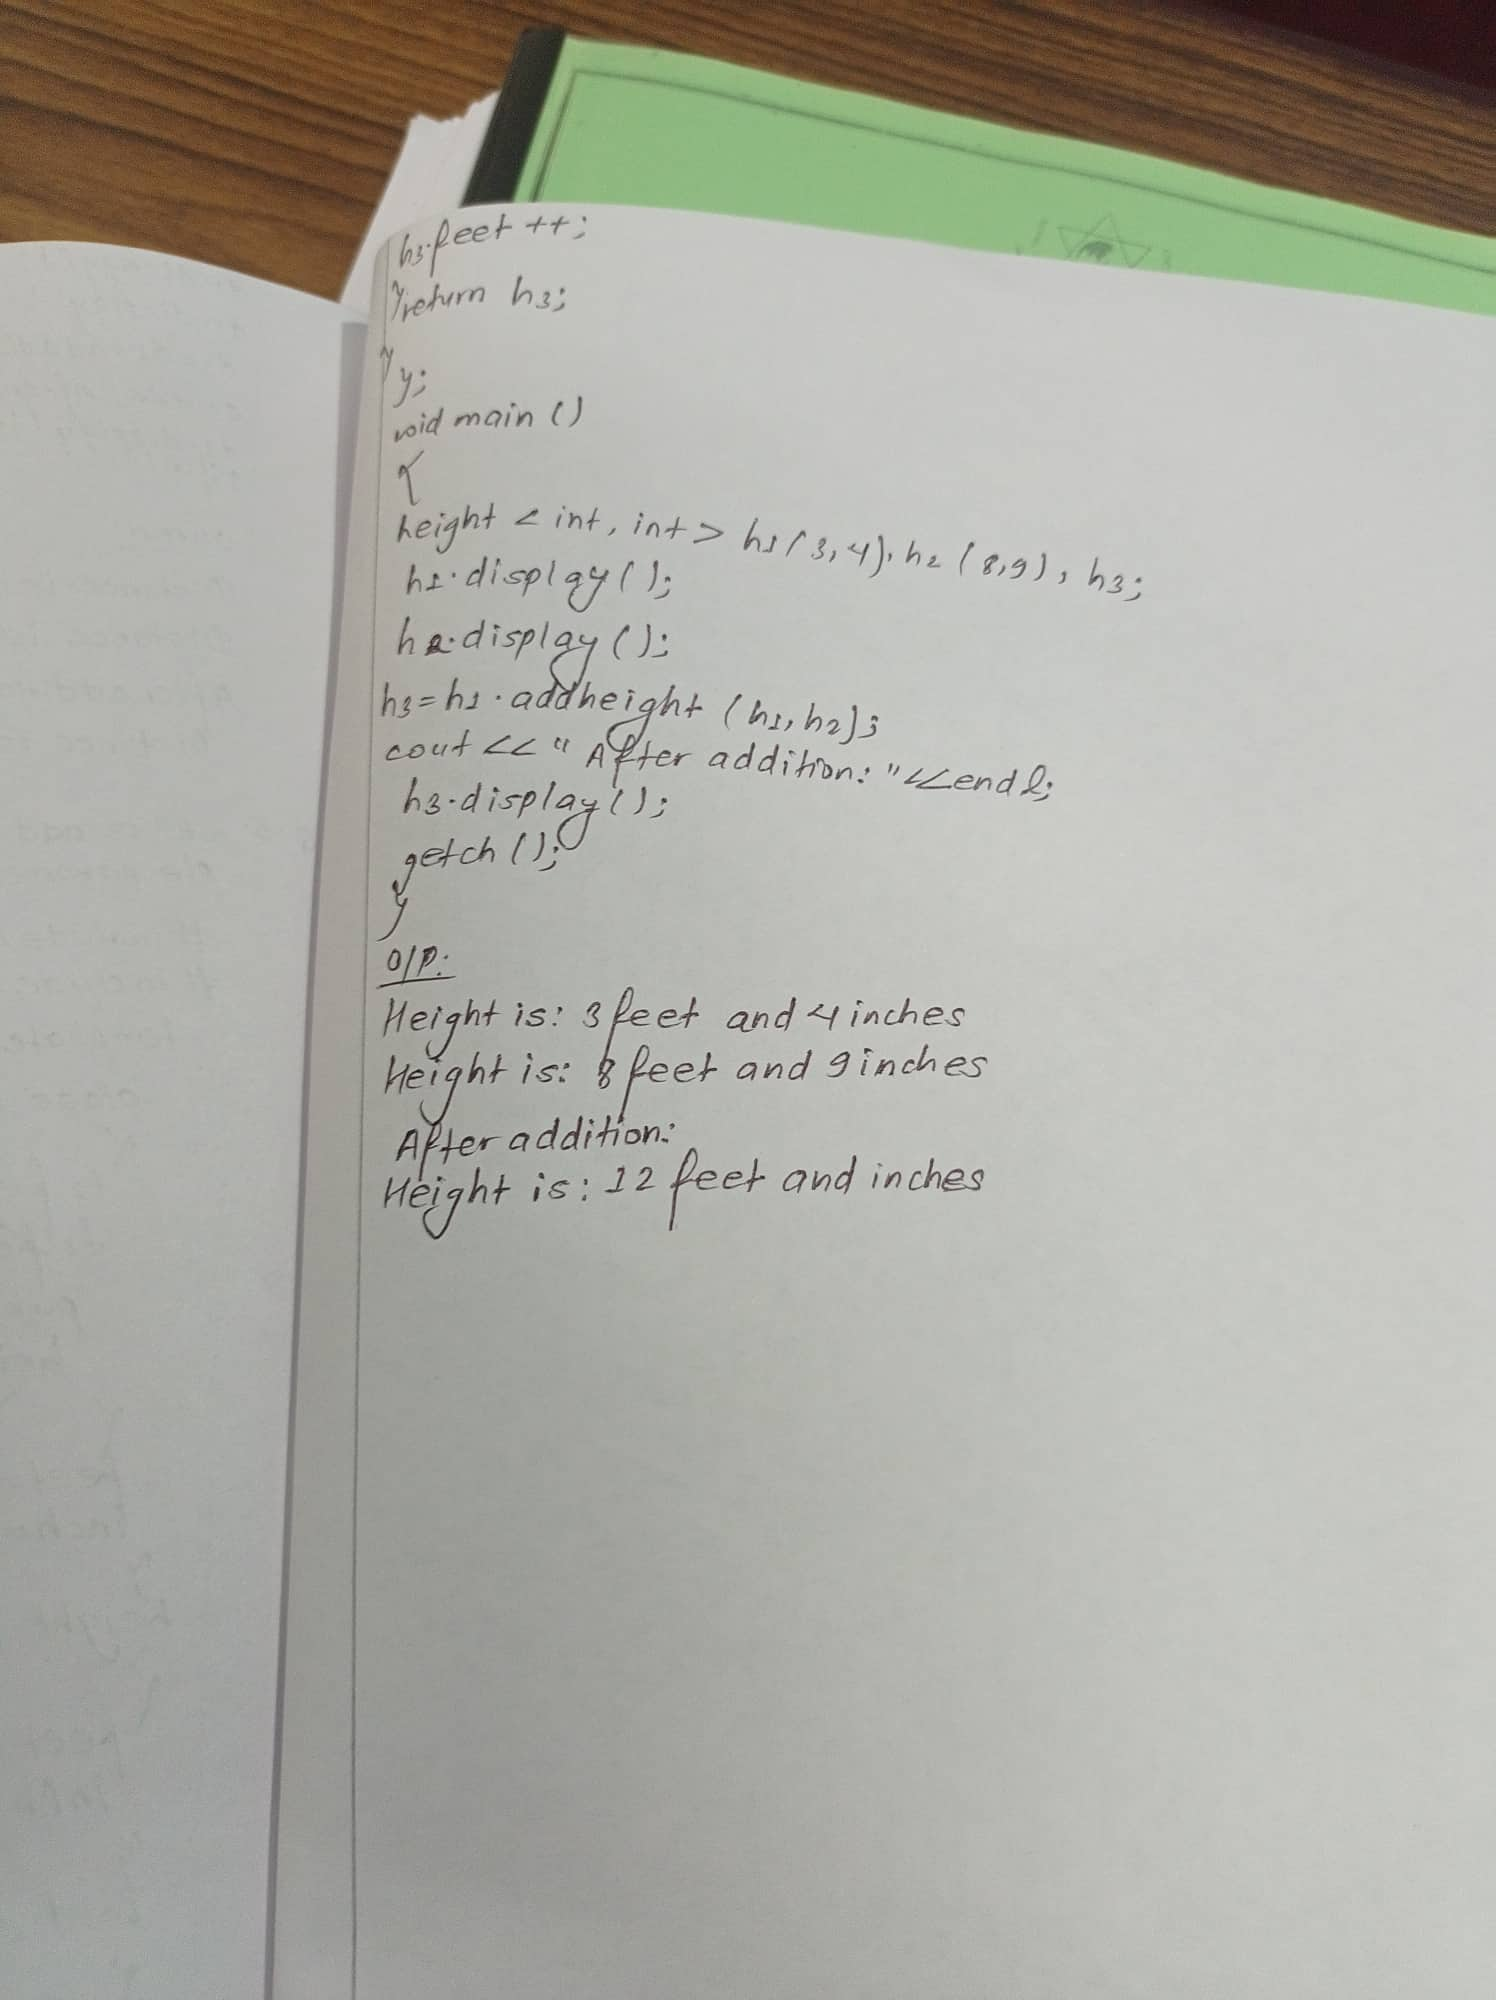 h3.feet ++;
}return h3;
}
};
void main ()
{
height < int, int > h1(3,4), h2 (8,9), h3;
h1.display();
h2.display();
h3=h1.addheight (h1,h2);
cout << "After addition:"<<endl;
h3.display();
getch();
}
O/P:
Height is: 3 feet and 4 inches
Height is: 8 feet and 9 inches
After addition:
Height is: 12 feet and inches